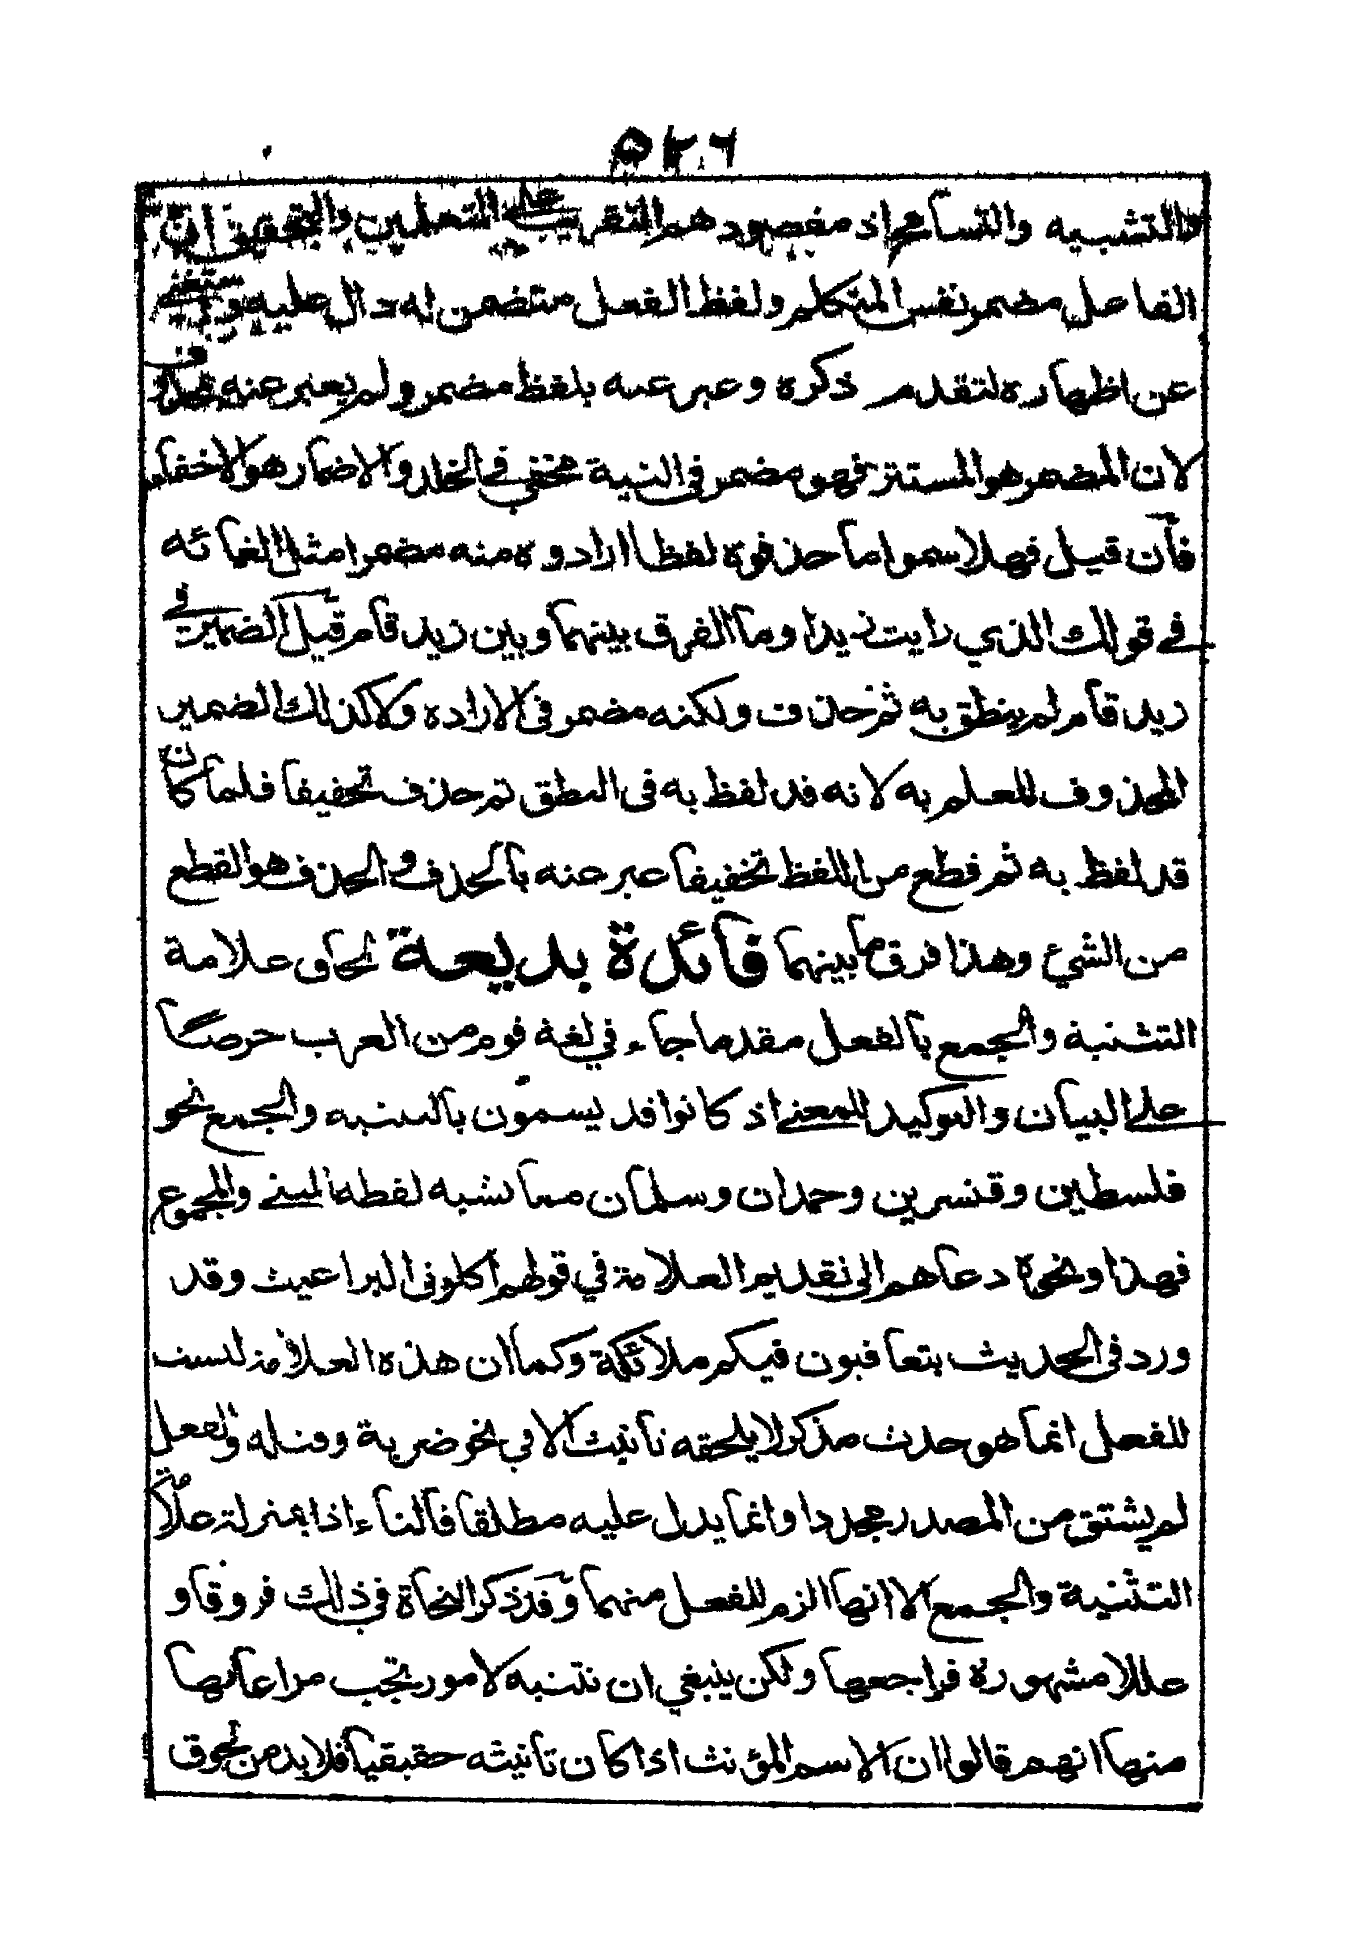 ٥٢٦
والتشبيه والتسامح اذ مقصودهم التقريب على المتعلمين والتحقيق ان
الفاعل مضمر نفس المتكلم ولفظ الفعل متضمن له دال عليه واستغنى
عن اظهاره لتقدم ذكره وعبر عنه بلفظ مضمر ولم يعبر عنه بمحذوف
لان المضمر هو المستتر فهو مضمر في النية مخفي في الخلد والاضمار هو الاخفاء
فان قيل فهلا سموا ما حذفوه لفظا ارادوه منه مضمرا مثل الغائه
في قولك الذي رايت زيدا وما الفرق بينهما وبين زيد قام قيل الضمير في
زيد قام لم ينطق به ثم حذف ولكنه مضمر في الاراده ولا كذلك الضمير
المحذوف للعلم به لانه قد لفظ به في النطق ثم حذف تخفيفا فلما كان
قد لفظ به ثم قطع من اللفظ تخفيفا عبر عنه بالحذف والحذف هو القطع
من الشيء وهذا فرق ما بينهما فائدة بديعة لحاق علامة
التثنية والجمع بالفعل مقدما جاء في لغة قوم من العرب حرصا
على البيان والتوكيد للمعنى اذ كانوا قد يسمون بالتثنيه والجمع نحو
فلسطين وقنسرين وحمدان وسلمان مما يشبه لفظه المبني والمجموع
فهذا ونحوه دعاهم الى تقديم العلامة في قولهم اكلوني البراغيث وقد
ورد في الحديث يتعاقبون فيكم ملائكة وكما ان هذه العلامة ليست
للفعل انما هو حدث مذكر لا يلحقه تانيث الا في نحو ضربة وقتله والفعل
لم يشتق من المصدر محددا وانما يدل عليه مطلقا فالتاء اذا بمنزلة علامة
التثنية والجمع الا انها الزم للفعل منهما وقد ذكر النحاة في ذلك فروقا و
عللا مشهورة فراجعها ولكن ينبغي ان تتنبه لامور يجب مراعاتها
منها انهم قالوا ان الاسم المؤنث اذا كان تانيثه حقيقيا فلا بد من لحوق